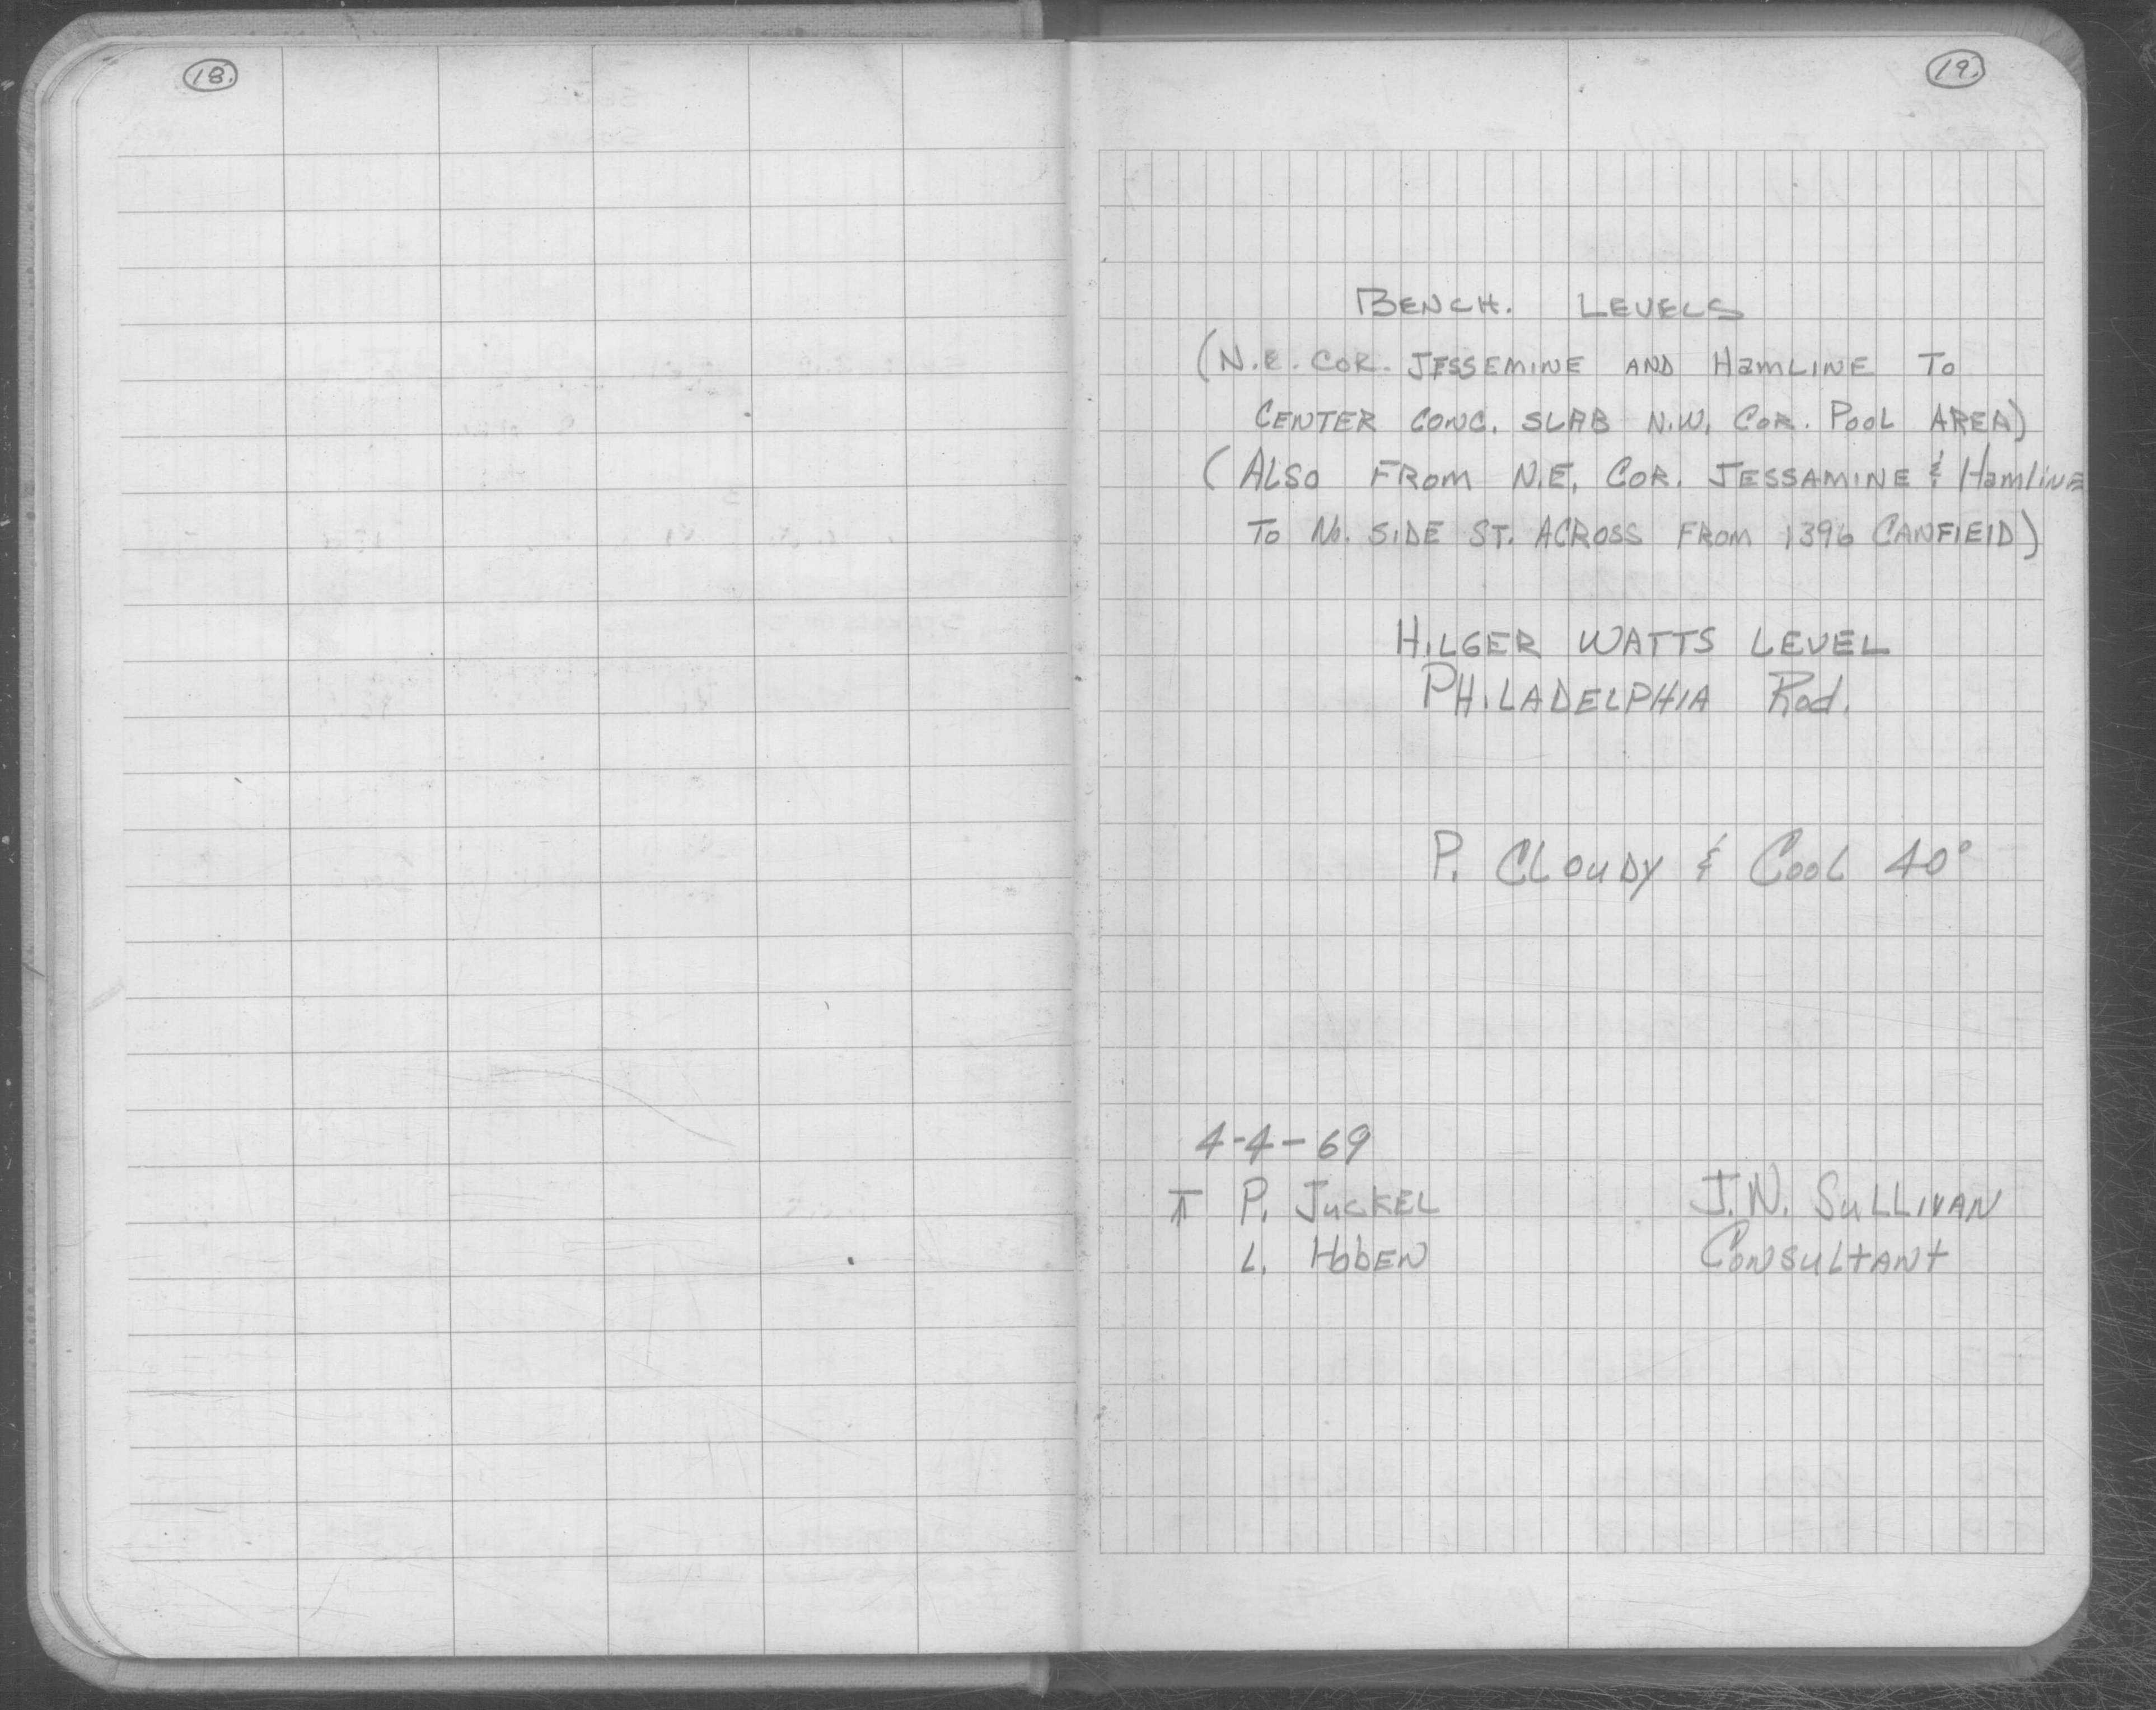 18.
19.
BENCH. LEVELS
(N.E. COR. JESSEMINE AND HAMLINE TO
CENTER CONC. SLAB N.W. COR. POOL AREA)
(ALSO FROM N.E. COR. JESSAMINE & HAMLINE
TO No. SIDE ST. ACROSS FROM 1396 CANFIEID)
HILGER WATTS LEVEL
PHILADELPHIA Rod.
P. CLOUDY & COOL 40°
4-4-69
⊼ P. JUCKEL J.N. SULLIVAN
L. HOBEN CONSULTANT